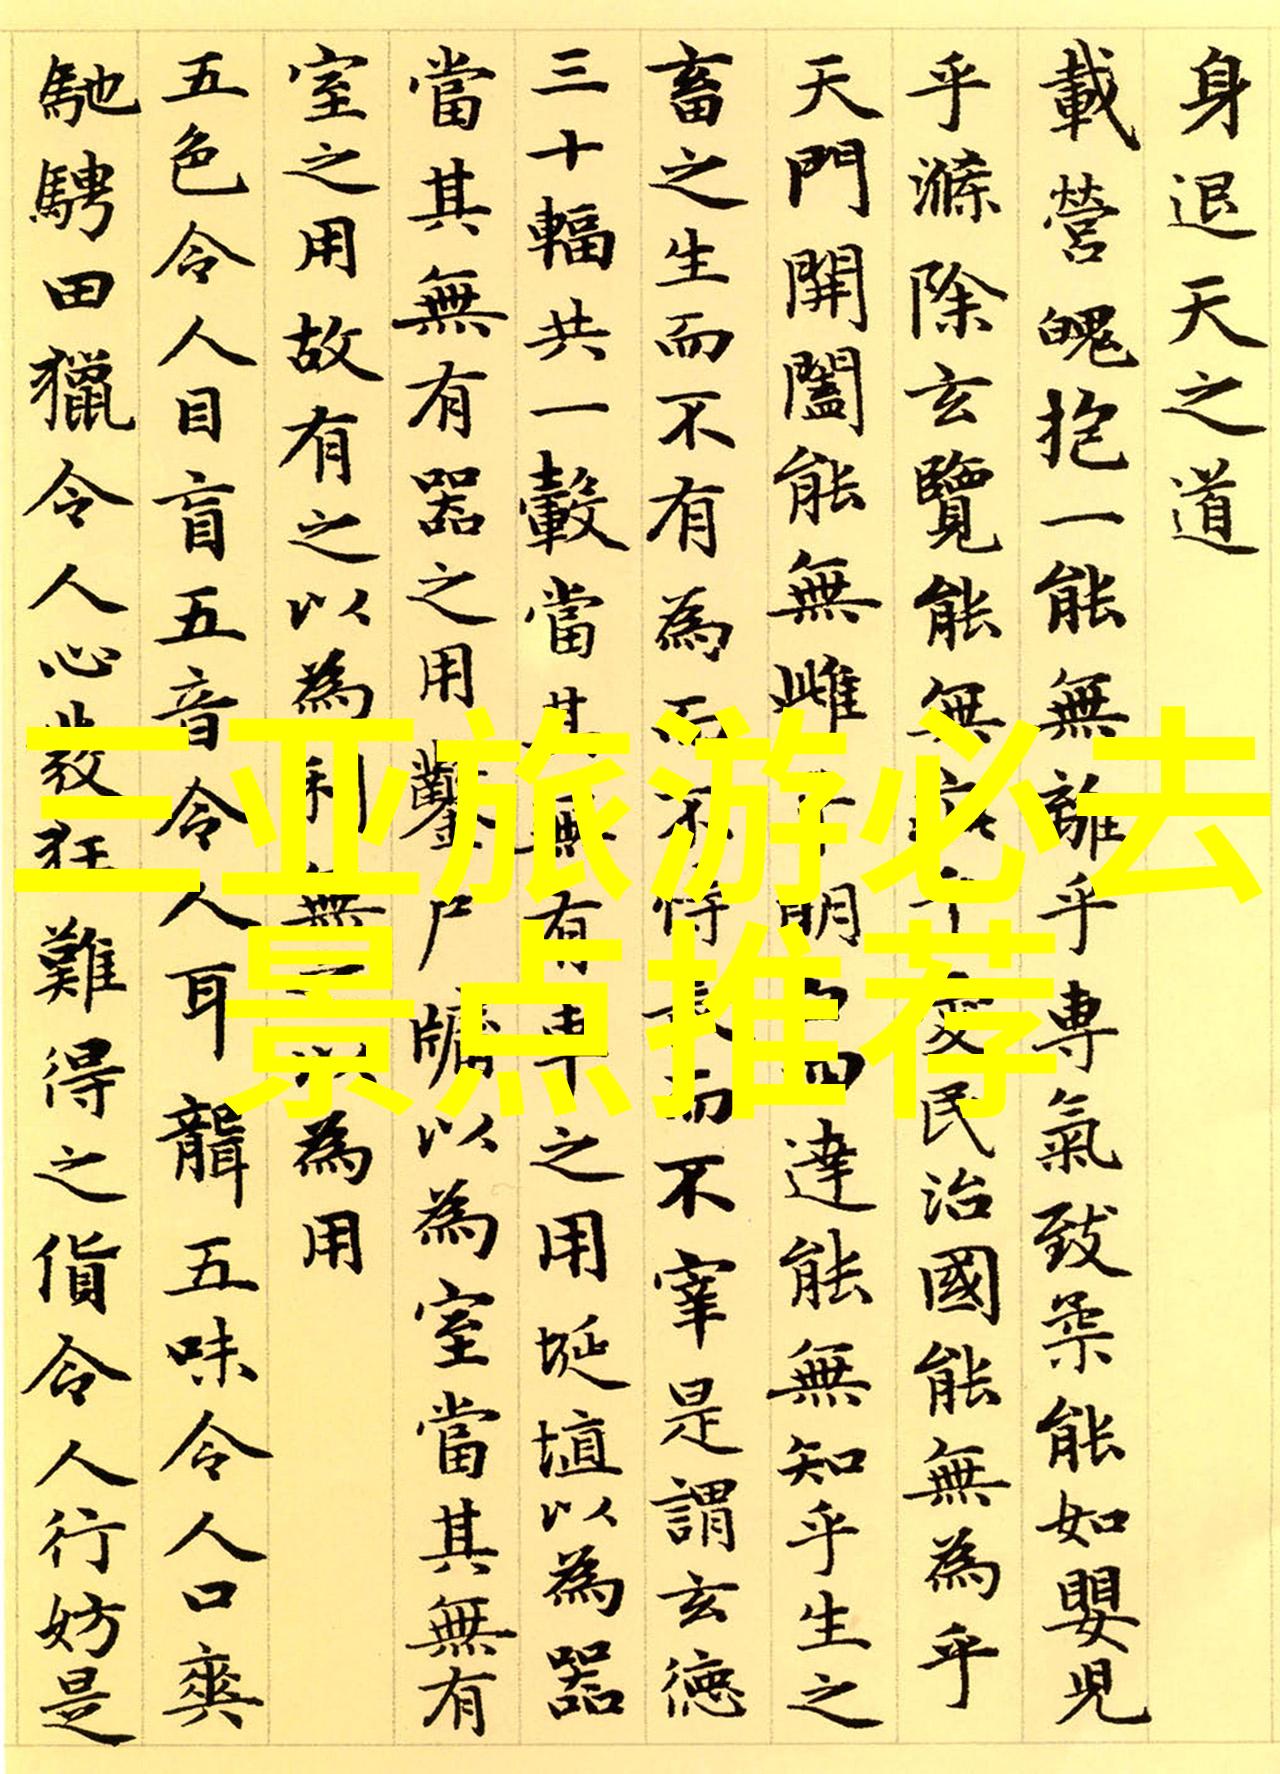 身退天之道
載營魄抱一能無離乎專氣致柔能如嬰兒
乎滌除玄覽能無疵乎愛民治國能無為乎
天門開闔能無雌乎明白四達能無知乎生之
畜之生而不有為而不恃長而不宰是謂玄德
三十輻共一轂當其無有車之用埏埴以為器
當其無有器之用鑿戶牖以為室當其無有
室之用故有之以為利無之以為用
五色令人目盲五音令人耳聾五味令人口爽
馳騁田獵令人心發狂難得之貨令人行妨是
三亚旅游必去
景点推荐